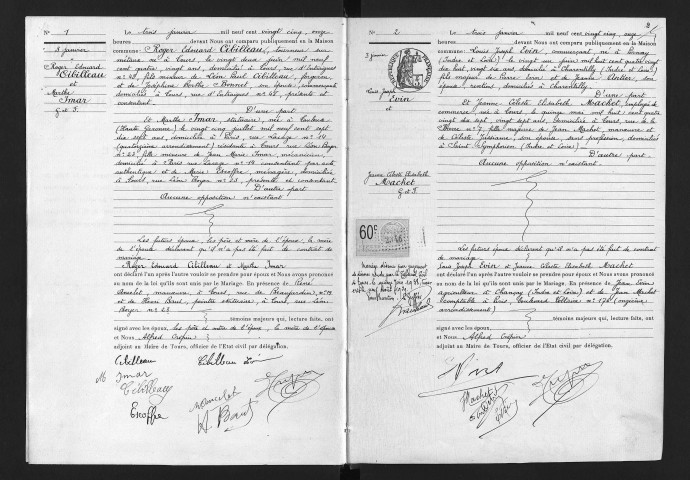 N° 1
3 janvier
Roger Edouard
Cibilleau
et
Marthe
Imar
G et F.
Le trois janvier mil neuf cent vingt cinq, onze
heures devant Nous ont comparu publiquement en la Maison
commune: Roger Edouard Cibilleau, tourneur sur
métaux, né à Tours, le vingt deux juin mil neuf
cent quatre, vingt ans, domicilié à Tours, rue d'Entraigues
n° 48, fils mineur de Léon Paul Cibilleau, forgeron
et de Joséphine Berthe Bonnet, son épouse, couturière,
domiciliés à Tours, rue d'Entraigues n° 48, présents et
consentant
D'une part
Et Marthe Imar, statuaire, née à
(Haute Garonne) le vingt cinq juillet mil neuf cent sept
dix sept ans, domiciliée à Paris, rue n° 14
arrondissement) résidente à Tours rue Léon Boyer
n° 23, fille mineure de Jean Marie Imar, mécanicien,
domicilié à Paris rue n° 14 consentant par acte
authentique et de Marie Escoffre, ménagère, domiciliée
à Tours, rue Léon Boyer n° 23, présente et consentant
D'autre part
Aucune opposition n'existant
Les futurs époux, les père et mère de l'époux, la mère
de l'épouse déclarent qu'il n'a pas été fait de contrat de
mariage.
Roger Edouard Cibilleau et Marthe Imar
ont déclaré l'un après l'autre vouloir se prendre pour époux et Nous avons prononcé
au nom de la loi qu'ils sont unis par le Mariage. En présence de René
manœuvre, à Tours, rue de Beaujardin, n°
et de Henri Baut, peintre, à Tours, rue Léon
Boyer n° 23
témoins majeurs qui, lecture faite, ont
signé avec les époux, les père et mère de l'époux, la mère de l'épouse
et Nous Alfred Crépin
adjoint au Maire de Tours, officier de l'Etat civil par délégation.
Cibilleau Cibilleau Léon
M Imar
Cibilleau
Escoffre
H Baut
N° 2
3 janvier
Louis Joseph
Evin
et
Jeanne Céleste Elisabeth
Machet
G et F.
60c
Le trois janvier mil neuf cent vingt cinq, onze
heures devant Nous ont comparu publiquement en la Maison
commune: Louis Joseph Evin, commerçant, né à Pernay
(Indre et Loire) le vingt un juin mil huit cent quatre vingt
dix huit, vingt six ans, domicilié à Charentilly (Indre et Loire)
fils majeur de Pierre Evin et de Jeanne son
épouse, rentiers, domiciliés à Charentilly.
D'une part
Et Jeanne Céleste Elisabeth Machet, employée de
commerce, née à Tours le quinze mai mil huit cent quatre
vingt dix sept, vingt sept ans, domiciliée à Tours, rue de la
n° 7, fille majeure de Jean Machet, manœuvre et
de Céleste son épouse, sans profession, domiciliés
à Saint Symphorien (Indre et Loire)
D'autre part
Aucune opposition n'existant.
Les futurs époux déclarent qu'il n'a pas été fait de contrat
de mariage.
Louis Joseph Evin et Jeanne Céleste Elisabeth Machet
ont déclaré l'un après l'autre vouloir se prendre pour époux et Nous avons prononcé
au nom de la loi qu'ils sont unis par le Mariage. En présence de Jean Evin
agriculteur à (Indre et Loire) et de Jean Machet
comptable à Paris, boulevard Voltaire n° (onzième
arrondissement)
témoins majeurs qui, lecture faite, ont
signé avec les époux.
et Nous Alfred Crépin
adjoint au Maire de Tours, officier de l'Etat civil par délégation.
Evin
Machet